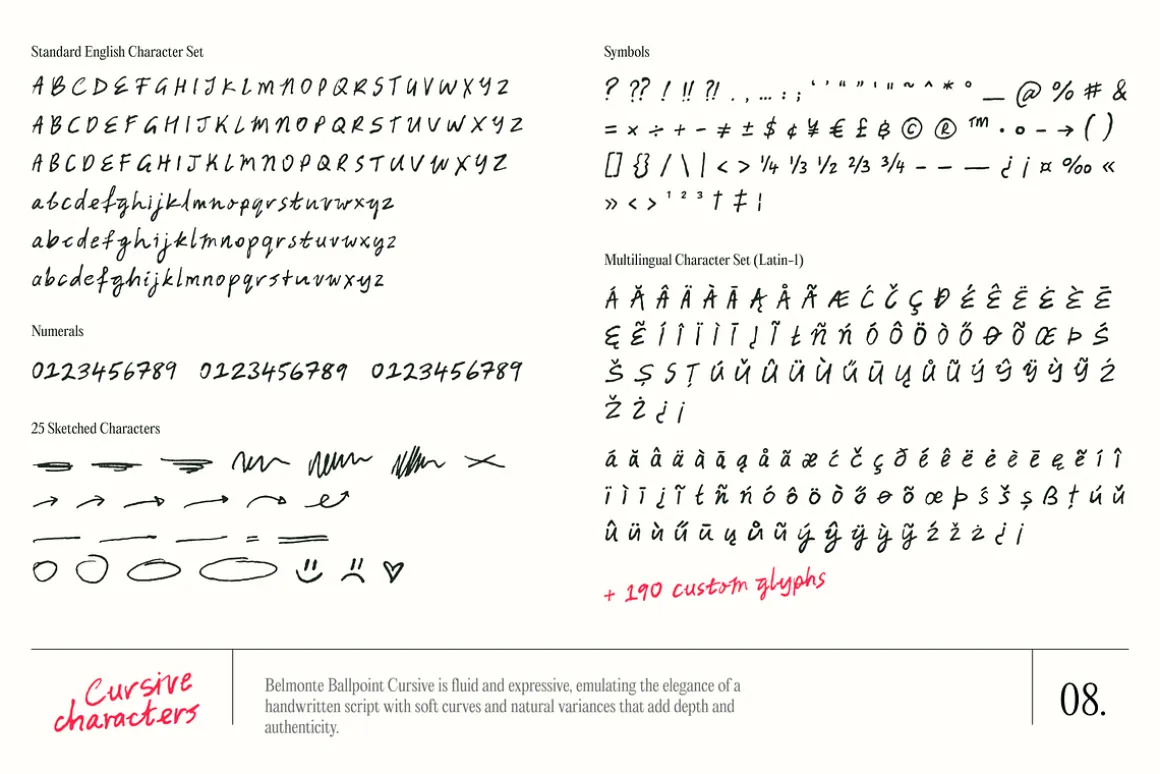 Standard English Character Set
A B C D E F G H I J K L M N O P Q R S T U V W X Y Z
A B C D E F G H I J K L M N O P Q R S T U V W X Y Z
A B C D E F G H I J K L M N O P Q R S T U V W X Y Z
a b c d e f g h i j k l m n o p q r s t u v w x y z
a b c d e f g h i j k l m n o p q r s t u v w x y z
a b c d e f g h i j k l m n o p q r s t u v w x y z
Numerals
0123456789 0123456789 0123456789
25 Sketched Characters
Symbols
? ?? ! !! ?! . , … : ; ‘ ’ “ ” ' " ~ ^ * ° _ @ % # &
= × ÷ + - ≠ ± $ ¢ ¥ € £ ฿ © ® ™ · ∘ - → ( )
[] {} / \ | < > ¼ ⅓ ½ ⅔ ¾ - – — ¿ ¡ ¤ ‰ «
» < > ¹ ² ³ † ‡ ¦
Multilingual Character Set (Latin-1)
Á Ă Â Ä À Ā Ą Å Ã Æ Ć Č Ç Đ É Ê Ë Ė È Ē
Ę Ẽ Í Î Ï Ì Ī Į Ĩ Ł Ñ Ń Ó Ô Ö Ò Ő Ø Õ Œ Þ Ś
Š Ş S Ţ Ú Ŭ Û Ü Ù Ű Ū Ų Ů Ũ Ý Ŷ Ÿ Ỳ Ỹ Ź
Ž Ż ¿ ¡
á ă â ä à ā ą å ã æ ć č ç ð é ê ë ė è ē ę ẽ í î
ï ì ī į ĩ ł ñ ń ó ô ö ò ő ø õ œ þ ś š ş ß ţ ú ŭ
û ü ù ű ū ų ů ũ ý ŷ ÿ ỳ ỹ ź ž ż ¿ ¡
+ 190 custom glyphs
Cursive
characters
Belmonte Ballpoint Cursive is fluid and expressive, emulating the elegance of a
handwritten script with soft curves and natural variances that add depth and
authenticity.
08.